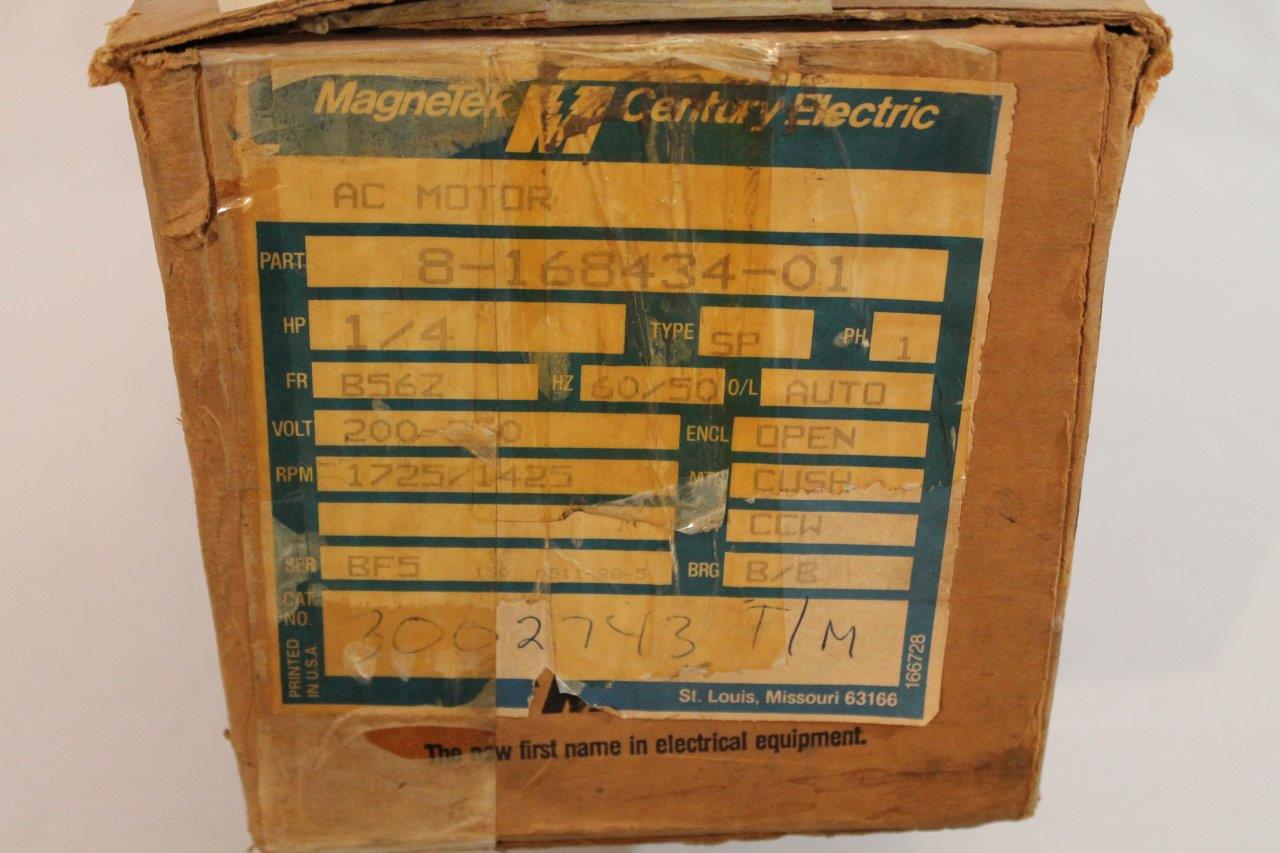 MagneTek Century Electric
AC MOTOR
PART 8-168434-01
HP 1/4 TYPE SP PH 1
FR B56Z HZ 60/50 O/L AUTO
VOLT ENCL OPEN
RPM 1725/1425 CUSH
CCW
SER BF5 BRG B/B
CAT NO. 3002743 T/M
PRINTED IN U.S.A.
166728
St. Louis, Missouri 63166
The new first name in electrical equipment.